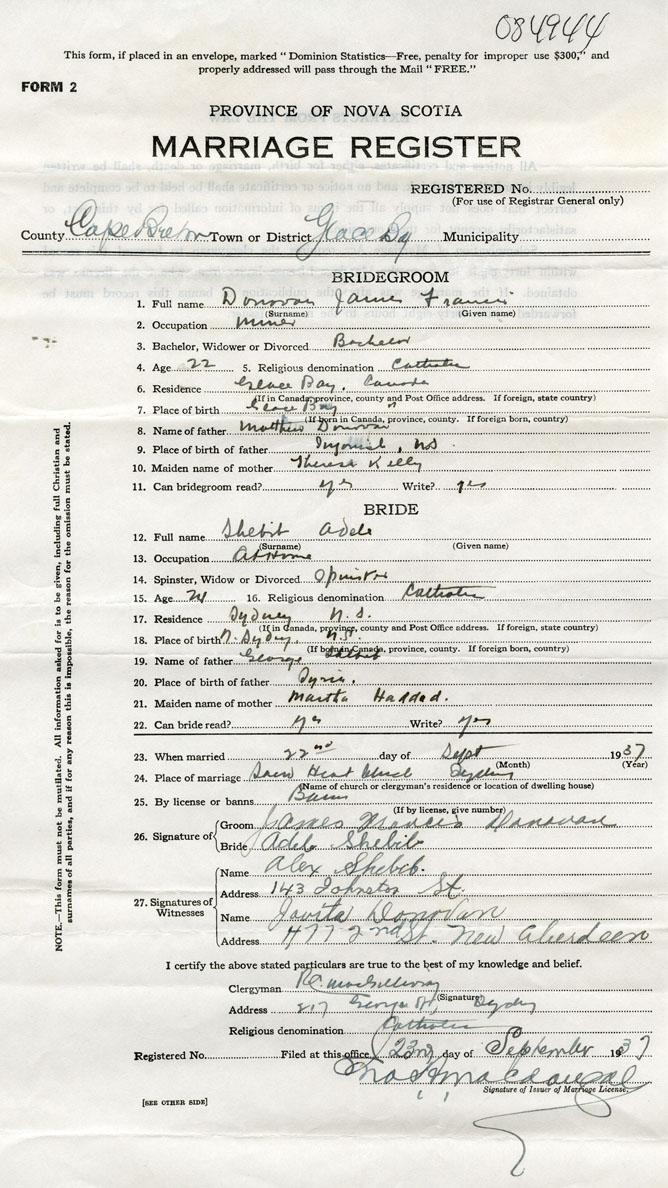 084944
This form, if placed in an envelope, marked "Dominion Statistics—Free, penalty for improper use $300," and
properly addressed will pass through the Mail "FREE."
FORM 2
PROVINCE OF NOVA SCOTIA
MARRIAGE REGISTER
REGISTERED No.
(For use of Registrar General only)
County Cape Breton Town or District Glace Bay Municipality
BRIDEGROOM
1. Full name Donovan James Francis
(Surname) (Given name)
2. Occupation Miner
3. Bachelor, Widower or Divorced Bachelor
4. Age 22 5. Religious denomination Catholic
6. Residence Glace Bay, Canada
(If in Canada, province, county and Post Office address. If foreign, state country)
7. Place of birth Glace Bay "
(If born in Canada, province, county. If foreign born, country)
8. Name of father Matthew Donovan
9. Place of birth of father Ingonish, NS
10. Maiden name of mother Theresa Kelly
11. Can bridegroom read? yes Write? yes
BRIDE
12. Full name Shebib Adele
(Surname) (Given name)
13. Occupation At Home
14. Spinster, Widow or Divorced Spinster
15. Age 24 16. Religious denomination Catholic
17. Residence Sydney N.S.
(If in Canada, province, county and Post Office address. If foreign, state country)
18. Place of birth N. Sydney, N.S.
(If born in Canada, province, county. If foreign born, country)
19. Name of father George Shebib
20. Place of birth of father Syria.
21. Maiden name of mother Martha Haddad.
22. Can bride read? yes Write? yes
23. When married 22nd day of Sept 1937
(Month) (Year)
24. Place of marriage Sacred Heart Church Sydney
(Name of church or clergyman's residence or location of dwelling house)
25. By license or banns Banns
(If by license, give number)
26. Signature of Groom James Francis Donovan
Bride Adele Shebib
27. Signatures of Witnesses
Name Alex Shebib.
Address 143 Johnston St.
Name Jovita Donovan
Address 477 2nd St. New Aberdeen
I certify the above stated particulars are true to the best of my knowledge and belief.
Clergyman R.C. MacGillivray
(Signature)
Address 217 George St, Sydney
Religious denomination Catholic
Registered No. Filed at this office 23rd day of September 1937
Signature of Issuer of Marriage License.
[SEE OTHER SIDE]
NOTE.—This form must not be mutilated. All information asked for is to be given, including full Christian and
surnames of all parties, and if for any reason this is impossible, the reason for the omission must be stated.